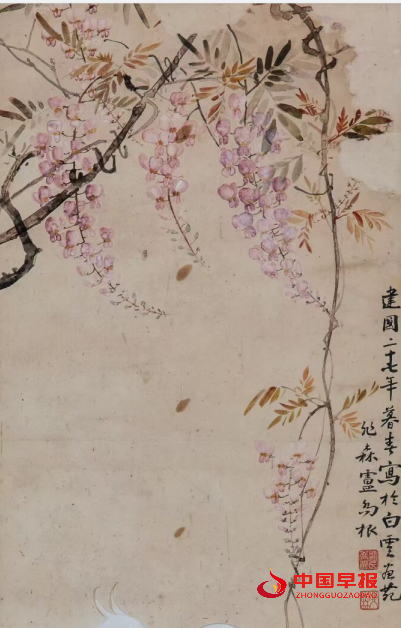 建國二十七年暮春寫於白雲畫苑
盧勾根
中国早报
ZHONGGUOZAOBAO